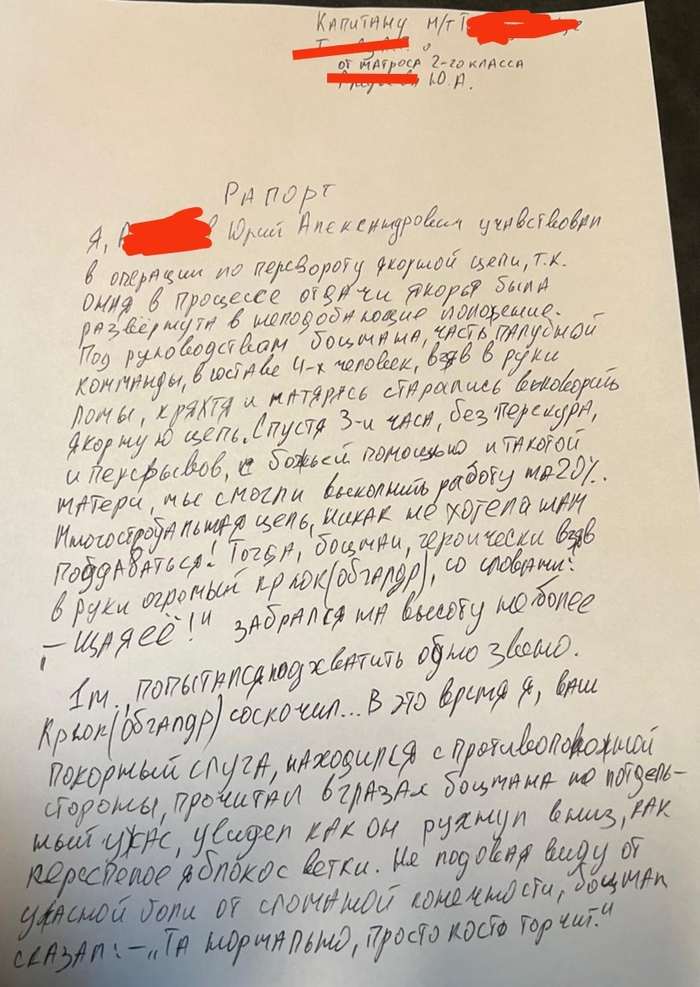 Капитану м/т Т
от матроса 2-го класса
Ю.А.
Рапорт
Я, А в Юрий Александрович учавствовал
в операции по перевороту якорной цепи, т.к.
она в процессе отдачи якоря была
развёрнута в неподобающие положение.
Под руководствам боцмана, часть палубной
комманды, в составе 4-х человек, взяв в руки
ломы, кряхтя и матярясь старались выковорить
якорную цепь. Спустя 3-и часа, без перекура,
и перерывов, с божьей помощью и такой-то
матери, мы смогли выколнить работу на 20%.
Многострадальная цепь, никак не хотела нам
поддаваться! Тогда, боцман, героически взяв
в руки огромный крюк(обгалдр), со словами:
– Щаяеё!" забрался на высоту не более
1м., попытался подхватить одно звено.
Крюк(обгалдр) соскочил... В это время я, ваш
покорный слуга, находился с противоположной
стороны, прочитал в глазах боцмана не поддель-
ный ужас, увидел как он рухнул вниз, как
переспелое яблоко с ветки. Не подовая виду от
ужасной боли от сломаной конечности, боцман
сказал: – „Та нормально, просто кость торчит."